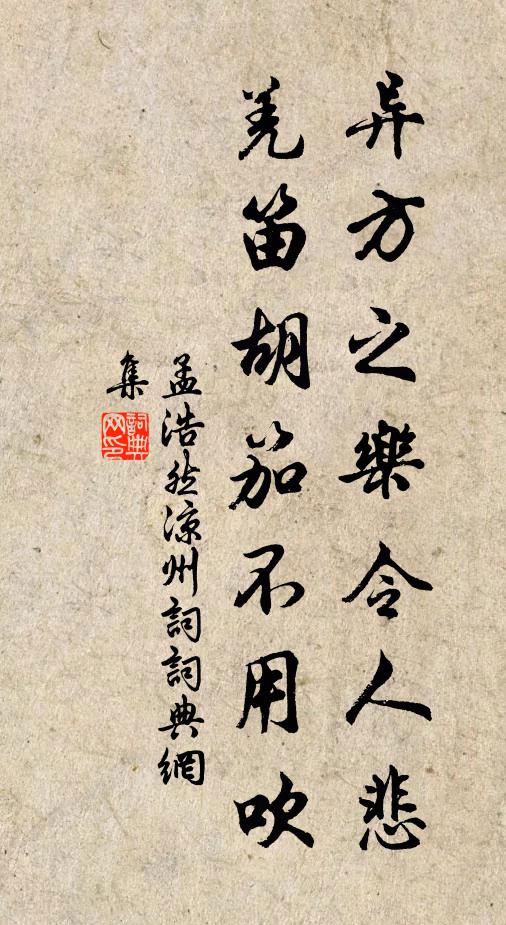 异方之樂令人悲
羌笛胡笳不用吹
孟浩然凉州詞詞典網
集
詞典
网印